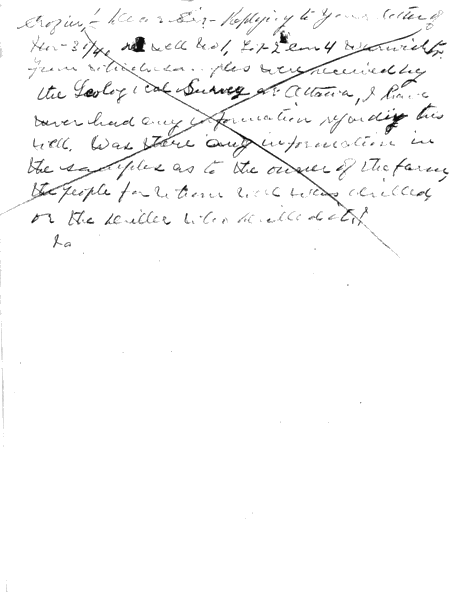 Crozier:- Dear Sir:- Replying to your letter of
Jan - 31/40, re well No 1, Lot 2 Con 4 Warwick Tp.
from which samples were received by
the Geological Survey at Ottawa, I have
never had any information regarding this
well. Was there any information in
the samples as to the owner of the farm,
the people for whom well was drilled
or the driller who drilled it?
Ia